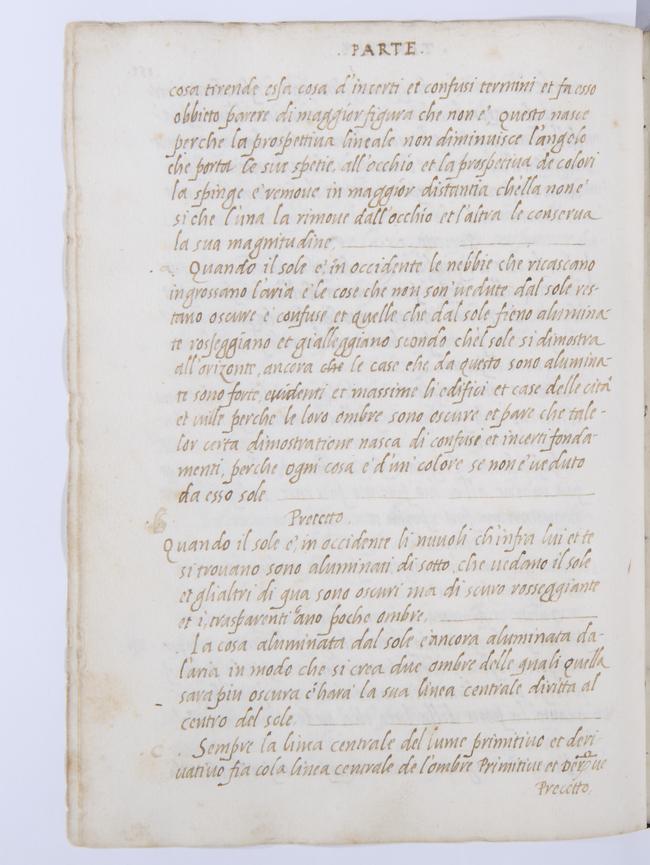 . PARTE .
cosa tirende essa cosa d'incerti et confusi termini et fa esso
obbieto parere di maggior figura che non è. Questo nasce
perche la prospettiva lineale non diminuisce l'angolo
che porta le sue spetie, all'occhio et la prospetiva de colori
la spinge e' remove in maggior distantia ch'ella non è
si che l'una la rimove dall'occhio et l'altra le conserva
la sua magnitudine.
a. Quando il sole è in occidente le nebbie che ricascano
ingrossano l'aria e le cose che non son' vedute dal sole res-
tano oscure e confuse et quelle che dal sole fieno alumina-
te rosseggiano et gialleggiano secondo che'l sole si dimostra
all'orizonte, ancora che le case che da questo sono alumina-
te sono forte evidenti et massime li edifici et case delle città
et ville perche le loro ombre sono oscure et pare che tale-
lor certa dimostratione nasca di confuse et incerti fonda-
menti, perche ogni cosa è d'un' colore se non è veduto
da esso sole
b. Precetto.
Quando il sole è in occidente li nuvoli ch'infra lui et te
si trovano sono aluminati di sotto, che vedano il sole
et gli altri di qua sono oscuri ma di scuro rosseggiante
et i trasparenti ano poche ombre.
. La cosa aluminata dal sole è ancora aluminata da-
l'aria in modo che si crea due ombre delle quali quella
sara piu oscura c'hara la sua linea centrale diritta al
centro del sole.
c. Sempre la linea centrale del lume primitivo et deri-
vativo fia cola linea centrale de l'ombre Primitive et
Precetto.